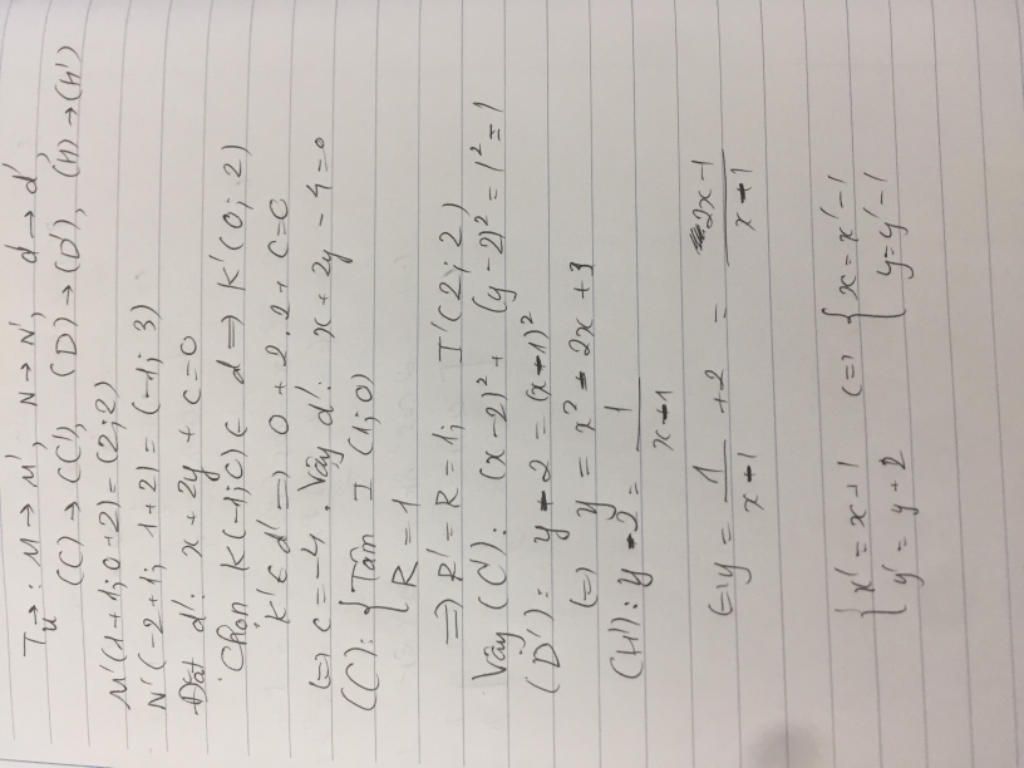 T_u→ : M → M', N → N', d → d',
(C) → (C'), (D) → (D'), (H) → (H')
M'(1+1; 0+2) = (2; 2)
N'(-2+1; 1+2) = (-1; 3)
Đặt d': x + 2y + c = 0
Chọn K(-1; 0) ∈ d ⇒ K'(0; 2)
K' ∈ d' ⇒ 0 + 2.2 + C = 0
(=) C = -4. Vậy d': x + 2y - 4 = 0
(C): { Tâm I (1; 0)
R = 1
⇒ R' = R = 1; I'(2; 2)
Vậy (C'): (x - 2)² + (y - 2)² = 1² = 1
(D'): y - 2 = (x - 1)²
(=) y = x² - 2x + 3
(H'): y - 2 = 1 / (x - 1)
(=) y = 1 / (x - 1) + 2 = (2x - 1) / (x - 1)
{ x' = x + 1 (=) { x = x' - 1
y' = y + 2 y = y' - 1